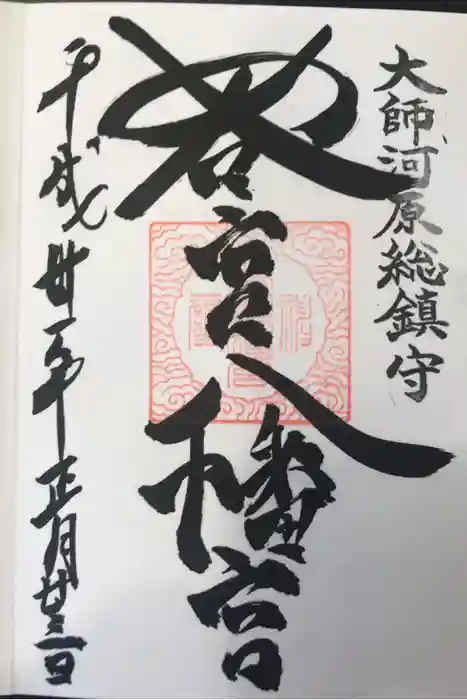 大師河原総鎮守
若宮八幡宮
平成丗一年正月廿三日